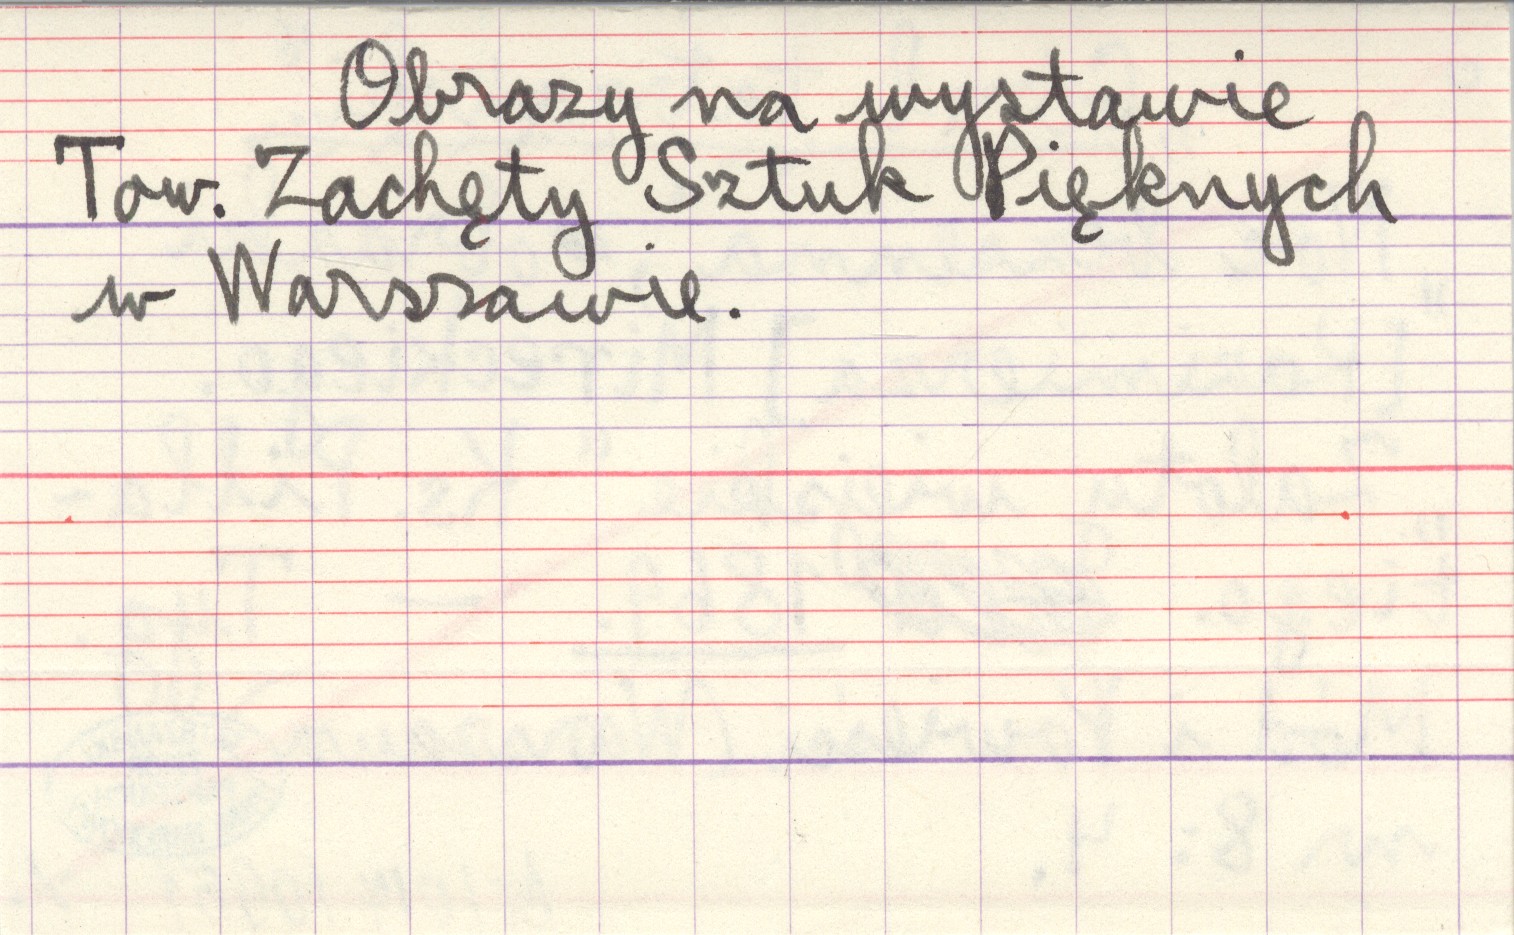 Obrazy na wystawie
Tow. Zachęty Sztuk Pięknych
w Warszawie.